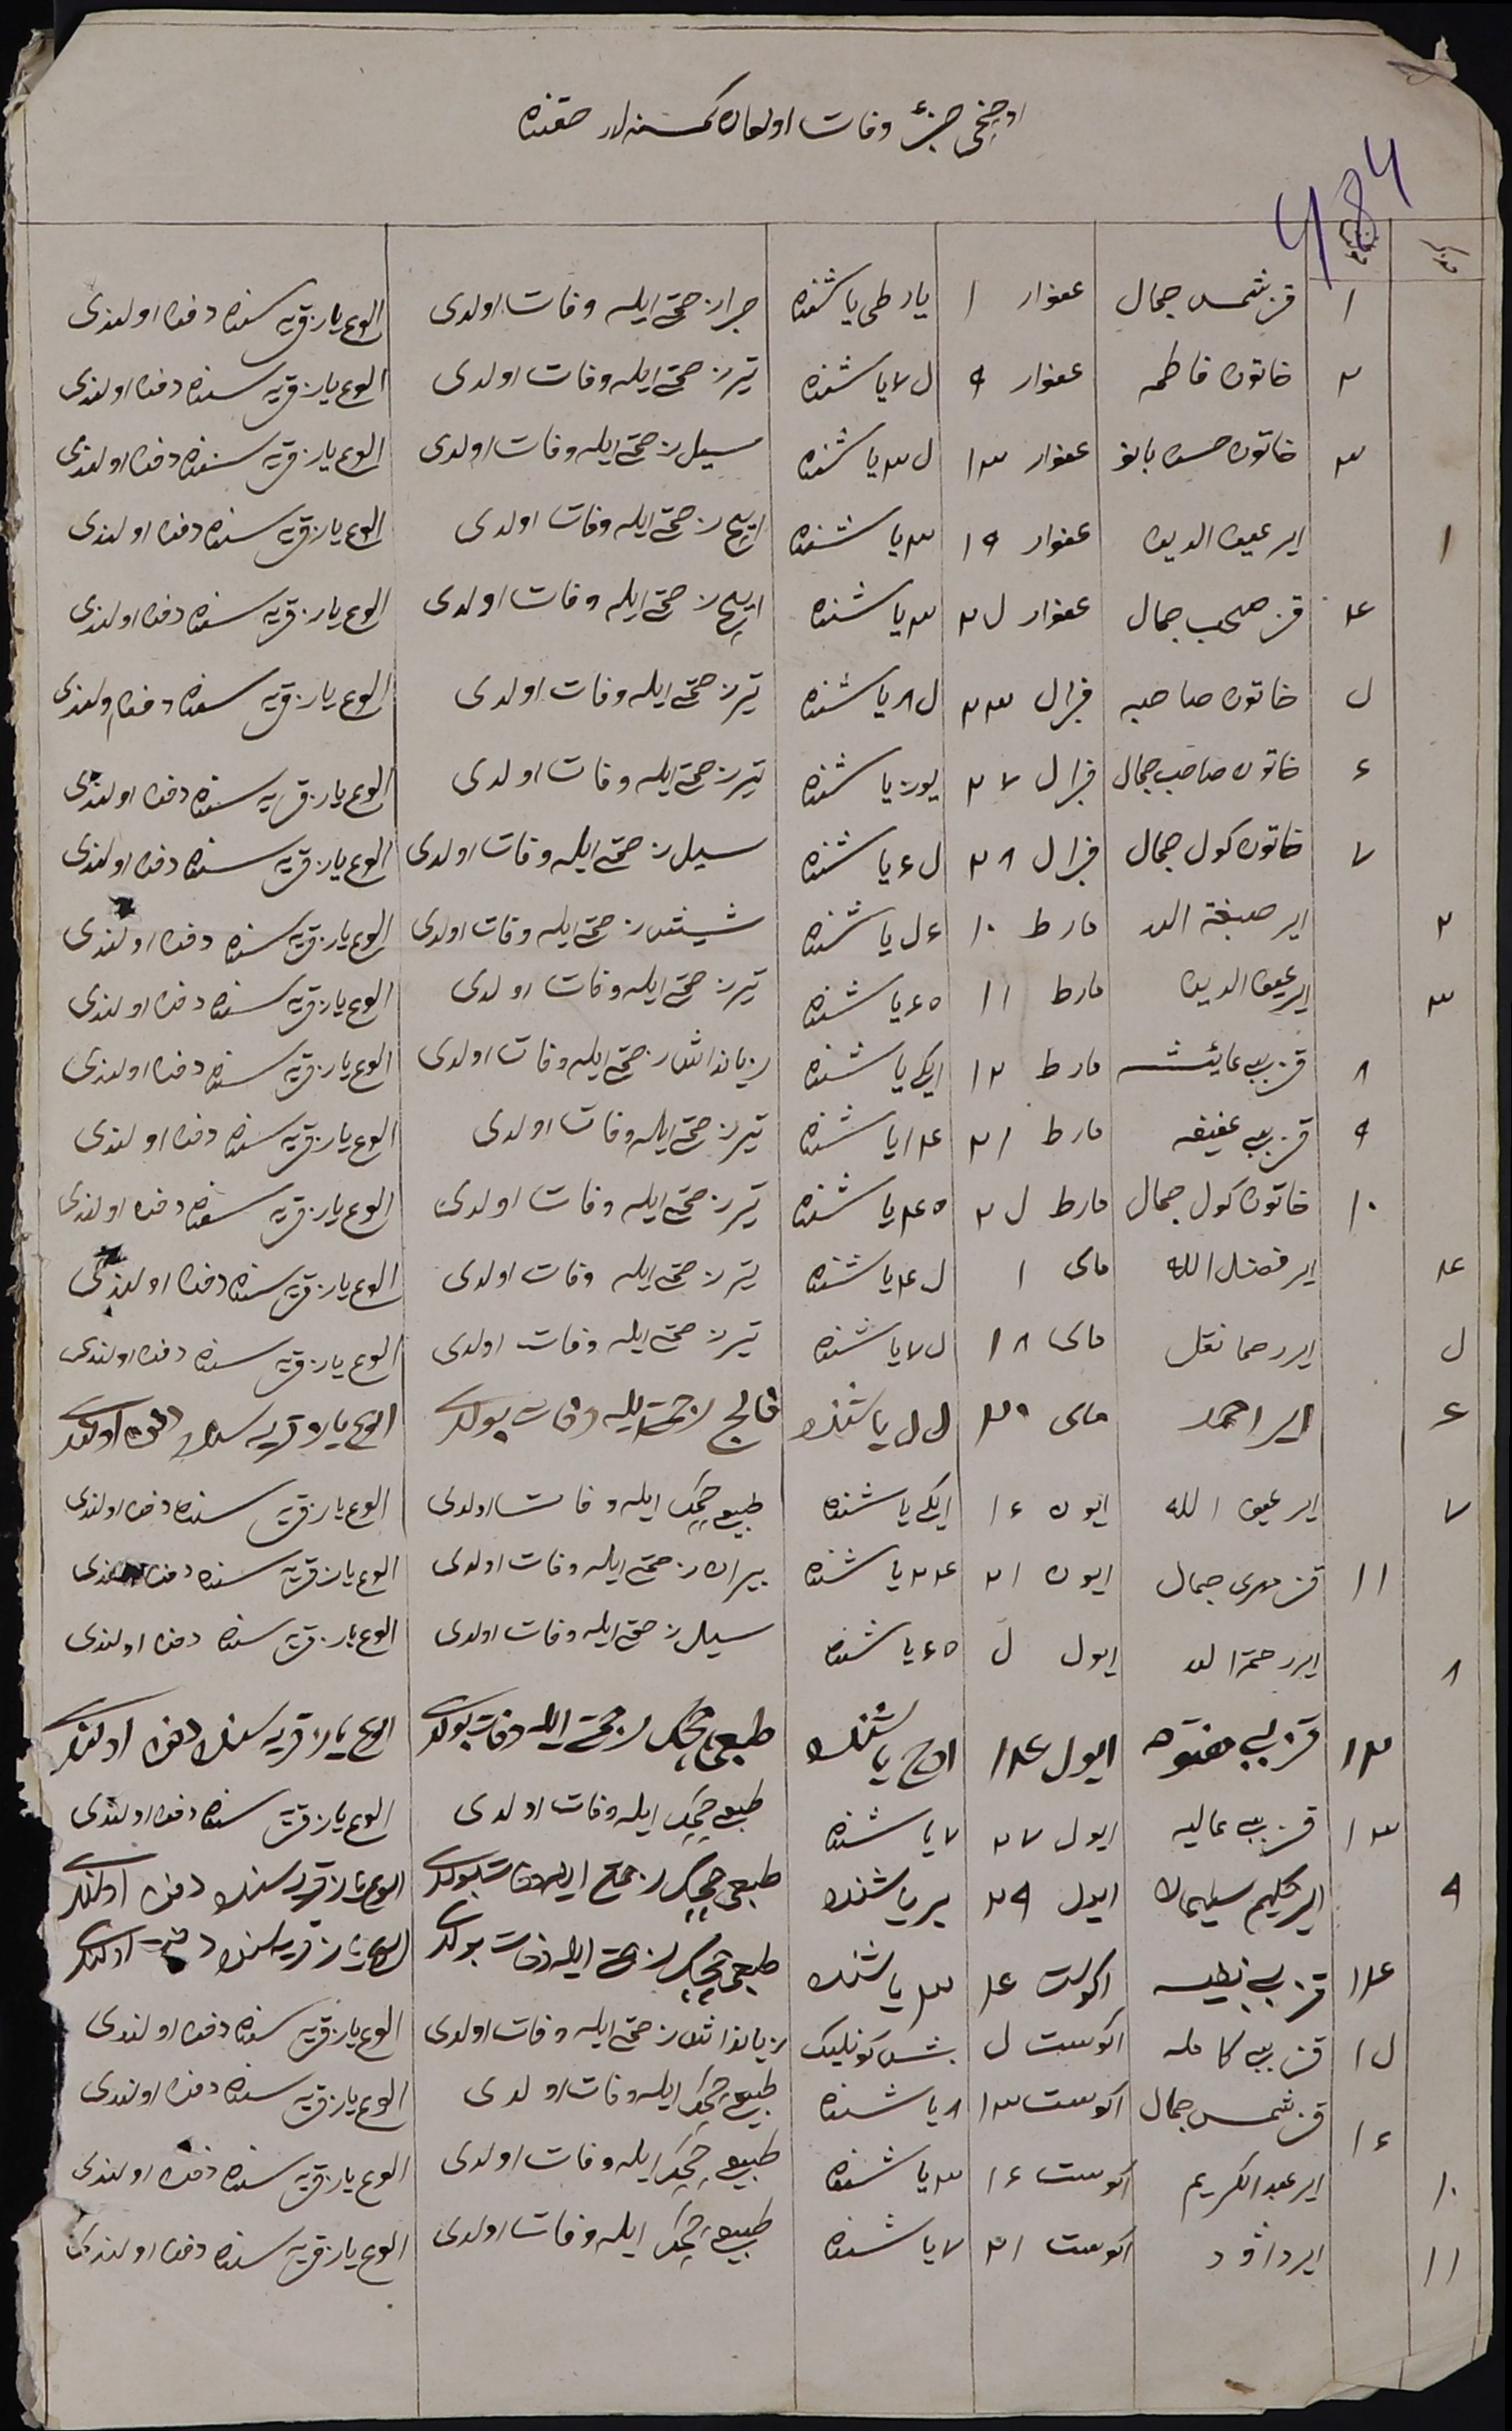 اوچنچی جزئ وفات اولغان کمسنه لر حقنده
484
مذکر مؤنث
۱ قز شمس جمال عنوار ۱ یارطی یاشنده جرار زحمتی ایله وفات اولدی الوع یار قریه سنده دفن اولندی
۲ خاتون فاطمه عنوار ۹ ل۷ یاشنده تیر زحمتی ایله وفات اولدی الوع یار قریه سنده دفن اولندی
۳ خاتون حسن بانو عنوار ۱۳ ل۳ یاشنده سیل زحمتی ایله وفات اولدی الوع یار قریه سنده دفن اولندی
۱ ایر عین الدین عنوار ۱۹ ۳ یاشنده زحمتی ایله وفات اولدی الوع یار قریه سنده دفن اولندی
۴ قز جمال عنوار ۲ل ۳ یاشنده زحمتی ایله وفات اولدی الوع یار قریه سنده دفن اولندی
ل خاتون صاحبه فبرال ۲۳ ل۸ یاشنده تیر زحمتی ایله وفات اولدی الوع یار قریه سنده دفن اولندی
۶ خاتون صاحب جمال فبرال ۲۷ یوز یاشنده تیر زحمتی ایله وفات اولدی الوع یار قریه سنده دفن اولندی
۷ خاتون کول جمال فبرال ۲۸ ل۶ یاشنده سیل زحمتی ایله وفات اولدی الوع یار قریه سنده دفن اولندی
۲ ایر صبغة الله مارط ۱۰ ۶ل یاشنده زحمتی ایله وفات اولدی الوع یار قریه سنده دفن اولندی
۳ ایر عین الدین مارط ۱۱ ۶۵ یاشنده تیر زحمتی ایله وفات اولدی الوع یار قریه سنده دفن اولندی
۸ قز بی عائشه مارط ۱۲ ایکی یاشنده زحمتی ایله وفات اولدی الوع یار قریه سنده دفن اولندی
۹ قز بی عفیفه مارط ۲۱ ۱۴ یاشنده تیر زحمتی ایله وفات اولدی الوع یار قریه سنده دفن اولندی
۱۰ خاتون کول جمال مارط ۲ل ۴۵ یاشنده تیر زحمتی ایله وفات اولدی الوع یار قریه سنده دفن اولندی
۴ ایر فضل الله مای ۱ ل۴ یاشنده تیر زحمتی ایله وفات اولدی الوع یار قریه سنده دفن اولندی
ل ایر رحمانقل مای ۱۸ ل۷ یاشنده تیر زحمتی ایله وفات اولدی الوع یار قریه سنده دفن اولندی
۶ ایر احمد مای ۲۰ ل ل یاشنده فالج زحمتی ایله وفات بولدی الوع یار قریه سنده دفن اولندی
۷ ایر عین الله ایون ۱۶ ایکی یاشنده طبیعی چچک ایله وفات اولدی الوع یار قریه سنده دفن اولندی
۱۱ قز مهری جمال ایون ۲۱ ۲۴ یاشنده زحمتی ایله وفات اولدی الوع یار قریه سنده دفن اولندی
۸ ایر رحمة الله ایول ل ۶۵ یاشنده سیل زحمتی ایله وفات اولدی الوع یار قریه سنده دفن اولندی
۱۲ قز بی مفتوحه ایول ۱۴ اوچ یاشنده طبیعی چچک زحمتی ایله وفات بولدی الوع یار قریه سنده دفن اولندی
۱۳ قز بی عالیه ایول ۲۷ ۷ یاشنده طبیعی چچک ایله وفات اولدی الوع یار قریه سنده دفن اولندی
۹ ایر حکیم سلیمان ایول ۲۹ بر یاشنده طبیعی چچک زحمتی ایله وفات بولدی الوع یار قریه سنده دفن اولندی
۱۴ قز بی نفیسه اکوست ۴ ۳ یاشنده طبیعی چچک زحمتی ایله وفات بولدی الوع یار قریه سنده دفن اولندی
۱ل قز بی کامله اکوست ل بش کونلیک زحمتی ایله وفات اولدی الوع یار قریه سنده دفن اولندی
۱۶ قز شمس جمال اکوست ۱۳ ۸ یاشنده طبیعی چچک ایله وفات اولدی الوع یار قریه سنده دفن اولندی
۱۰ ایر عبد الکریم اکوست ۱۶ ۳ یاشنده طبیعی چچک ایله وفات اولدی الوع یار قریه سنده دفن اولندی
۱۱ ایر داؤد اکوست ۲۱ ۷ یاشنده طبیعی چچک ایله وفات اولدی الوع یار قریه سنده دفن اولندی